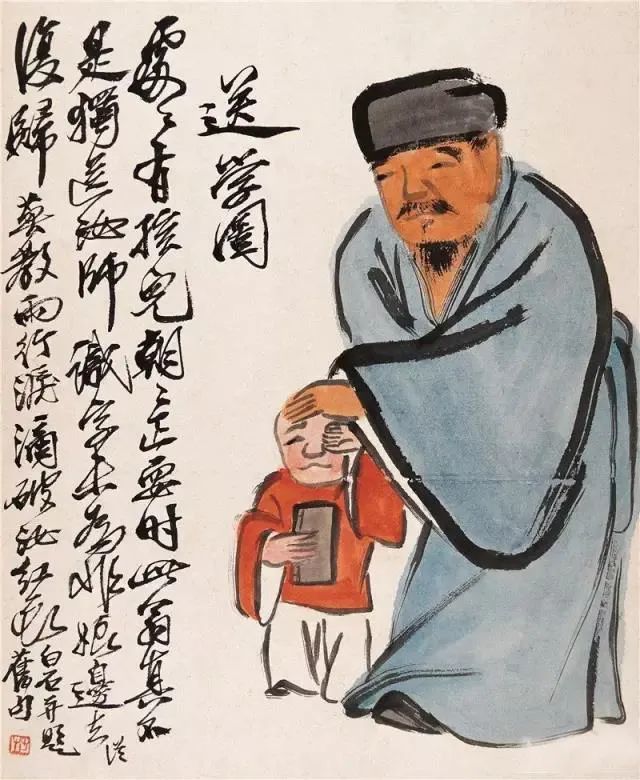 送学圖
處々有孩兒朝々正耍時此翁真不
是獨送汝師識字未為非娘邊去
從
復歸莫教兩行淚滴破汝紅衣
白石并題
舊句